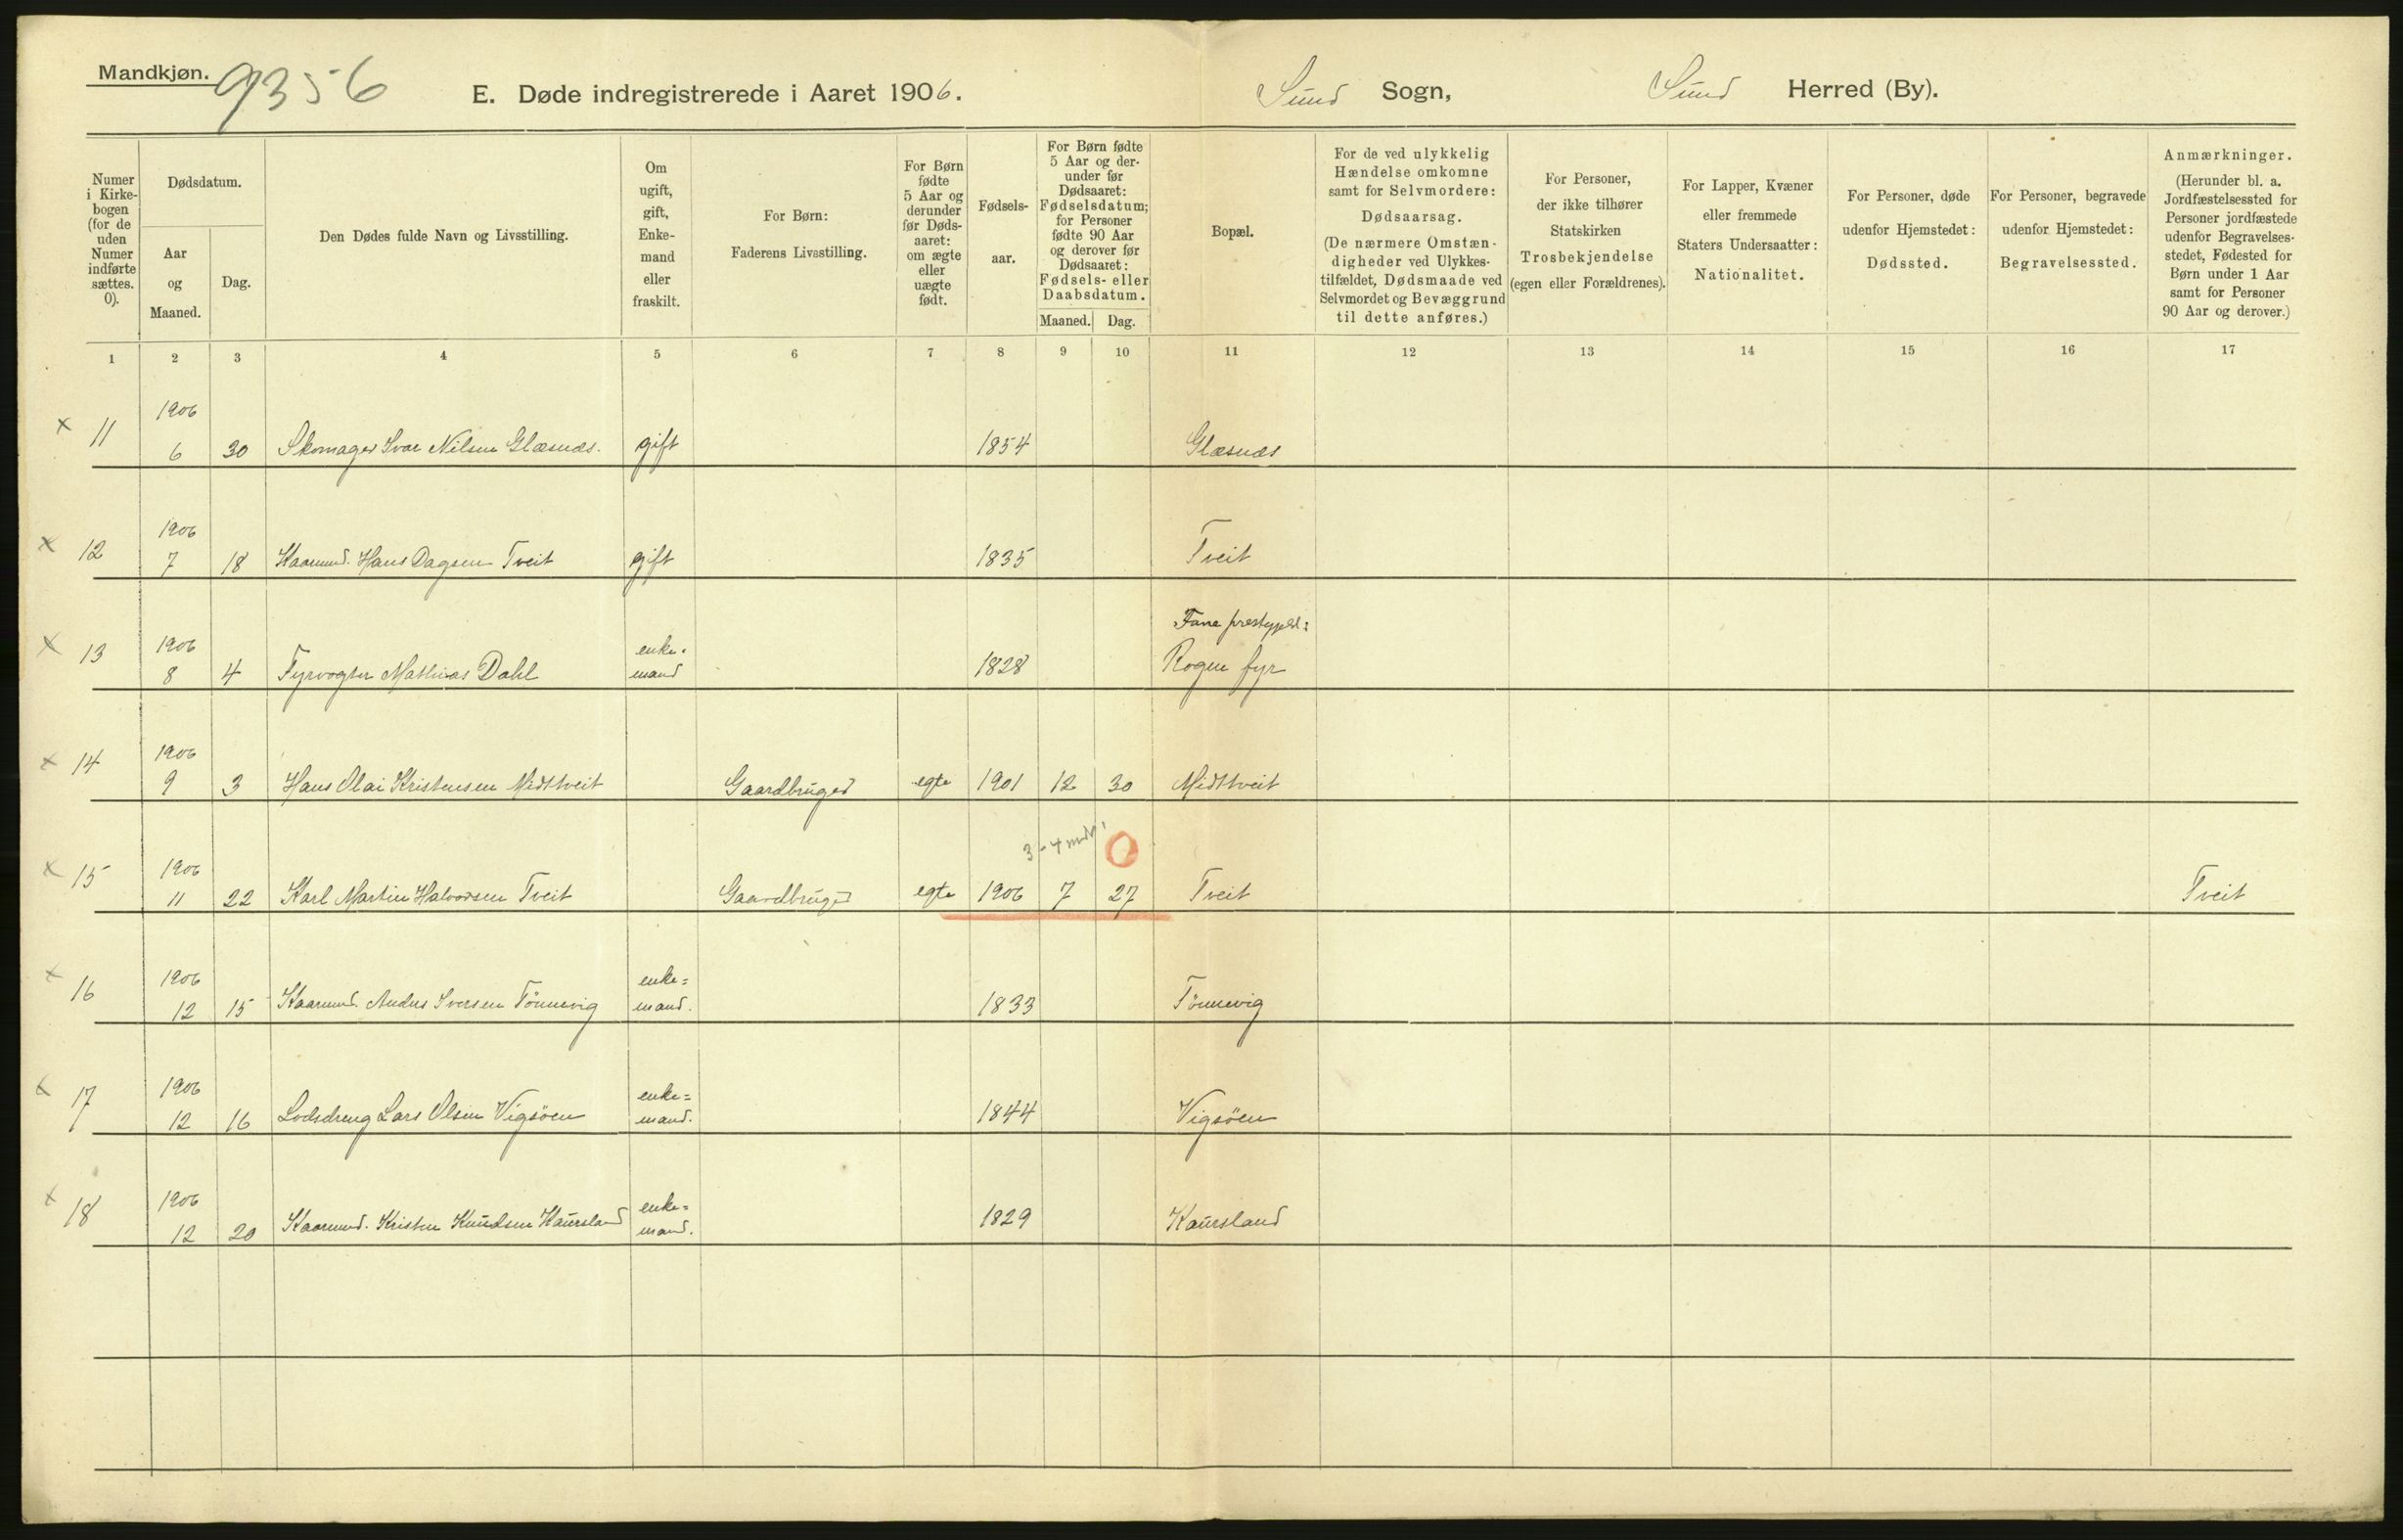 Mandkjøn. 9356
E. Døde indregistrerede i Aaret 1906. Sund Sogn, Sund Herred (By).
Numer i Kirkebogen (for de uden Numer indførte sættes. 0).
Dødsdatum.
Aar og Maaned.
Dag.
Den Dødes fulde Navn og Livsstilling.
Om ugift, gift, Enkemand eller fraskilt.
For Børn: Faderens Livsstilling.
For Børn fødte 5 Aar og derunder før Dødsaaret: om ægte eller uægte født.
Fødselsaar.
For Børn fødte 5 Aar og derunder før Dødsaaret: Fødselsdatum; for Personer fødte 90 Aar og derover før Dødsaaret: Fødsels- eller Daabsdatum.
Maaned. Dag.
Bopæl.
For de ved ulykkelig Hændelse omkomne samt for Selvmordere: Dødsaarsag. (De nærmere Omstændigheder ved Ulykkestilfældet, Dødsmaade ved Selvmordet og Bevæggrund til dette anføres.)
For Personer, der ikke tilhører Statskirken Trosbekjendelse (egen eller Forældrenes).
For Lapper, Kvæner eller fremmede Staters Undersaatter: Nationalitet.
For Personer, døde udenfor Hjemstedet: Dødssted.
For Personer, begravede udenfor Hjemstedet: Begravelsessted.
Anmærkninger. (Herunder bl. a. Jordfæstelsessted for Personer jordfæstede udenfor Begravelsesstedet, Fødested for Børn under 1 Aar samt for Personer 90 Aar og derover.)
1 2 3 4 5 6 7 8 9 10 11 12 13 14 15 16 17
x 11 1906
6 30 Skomager Ivar Nilsen Glæsnæs. gift 1854 Glæsnæs
x 12 1906
7 18 Kaarmd. Hans Dagsen Tveit gift 1835 Tveit
x 13 1906 enke- Fane prestegjeld:
8 4 Fyrvogter Mathias Dahl mand 1828 Rogen fyr
x 14 1906
9 3 Hans Olai Kristensen Midttveit Gaardbruger egte 1901 12 30 Midttveit
3-4 mdr. 0
x 15 1906
11 22 Karl Martin Halvorsen Tveit Gaardbruger egte 1906 7 27 Tveit Tveit
x 16 1906 enke=
12 15 Kaarmd. Anders Iversen Tönnevig mand. 1833 Tönnevig
x 17 1906 enke=
12 16 Lodsdreng Lars Olsen Vigsöen mand. 1844 Vigsöen
x 18 1906 enke=
12 20 Kaarmd. Kristen Knudsen Kaursland mand. 1829 Kaursland